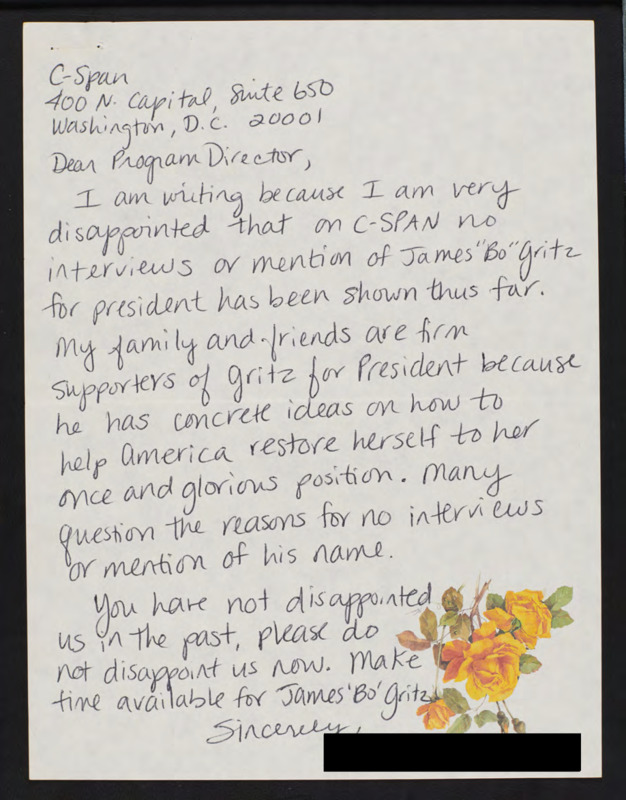 C-Span
400 N. Capital, Suite 650
Washington, D.C. 20001
Dear Program Director,
I am writing because I am very
disappointed that on C-SPAN no
interviews or mention of James "Bo" Gritz
for president has been shown thus far.
My family and friends are firm
supporters of Gritz for President because
he has concrete ideas on how to
help America restore herself to her
once and glorious position. Many
question the reasons for no interviews
or mention of his name.
You have not disappointed
us in the past, please do
not disappoint us now. Make
time available for James 'Bo' Gritz.
Sincerely,